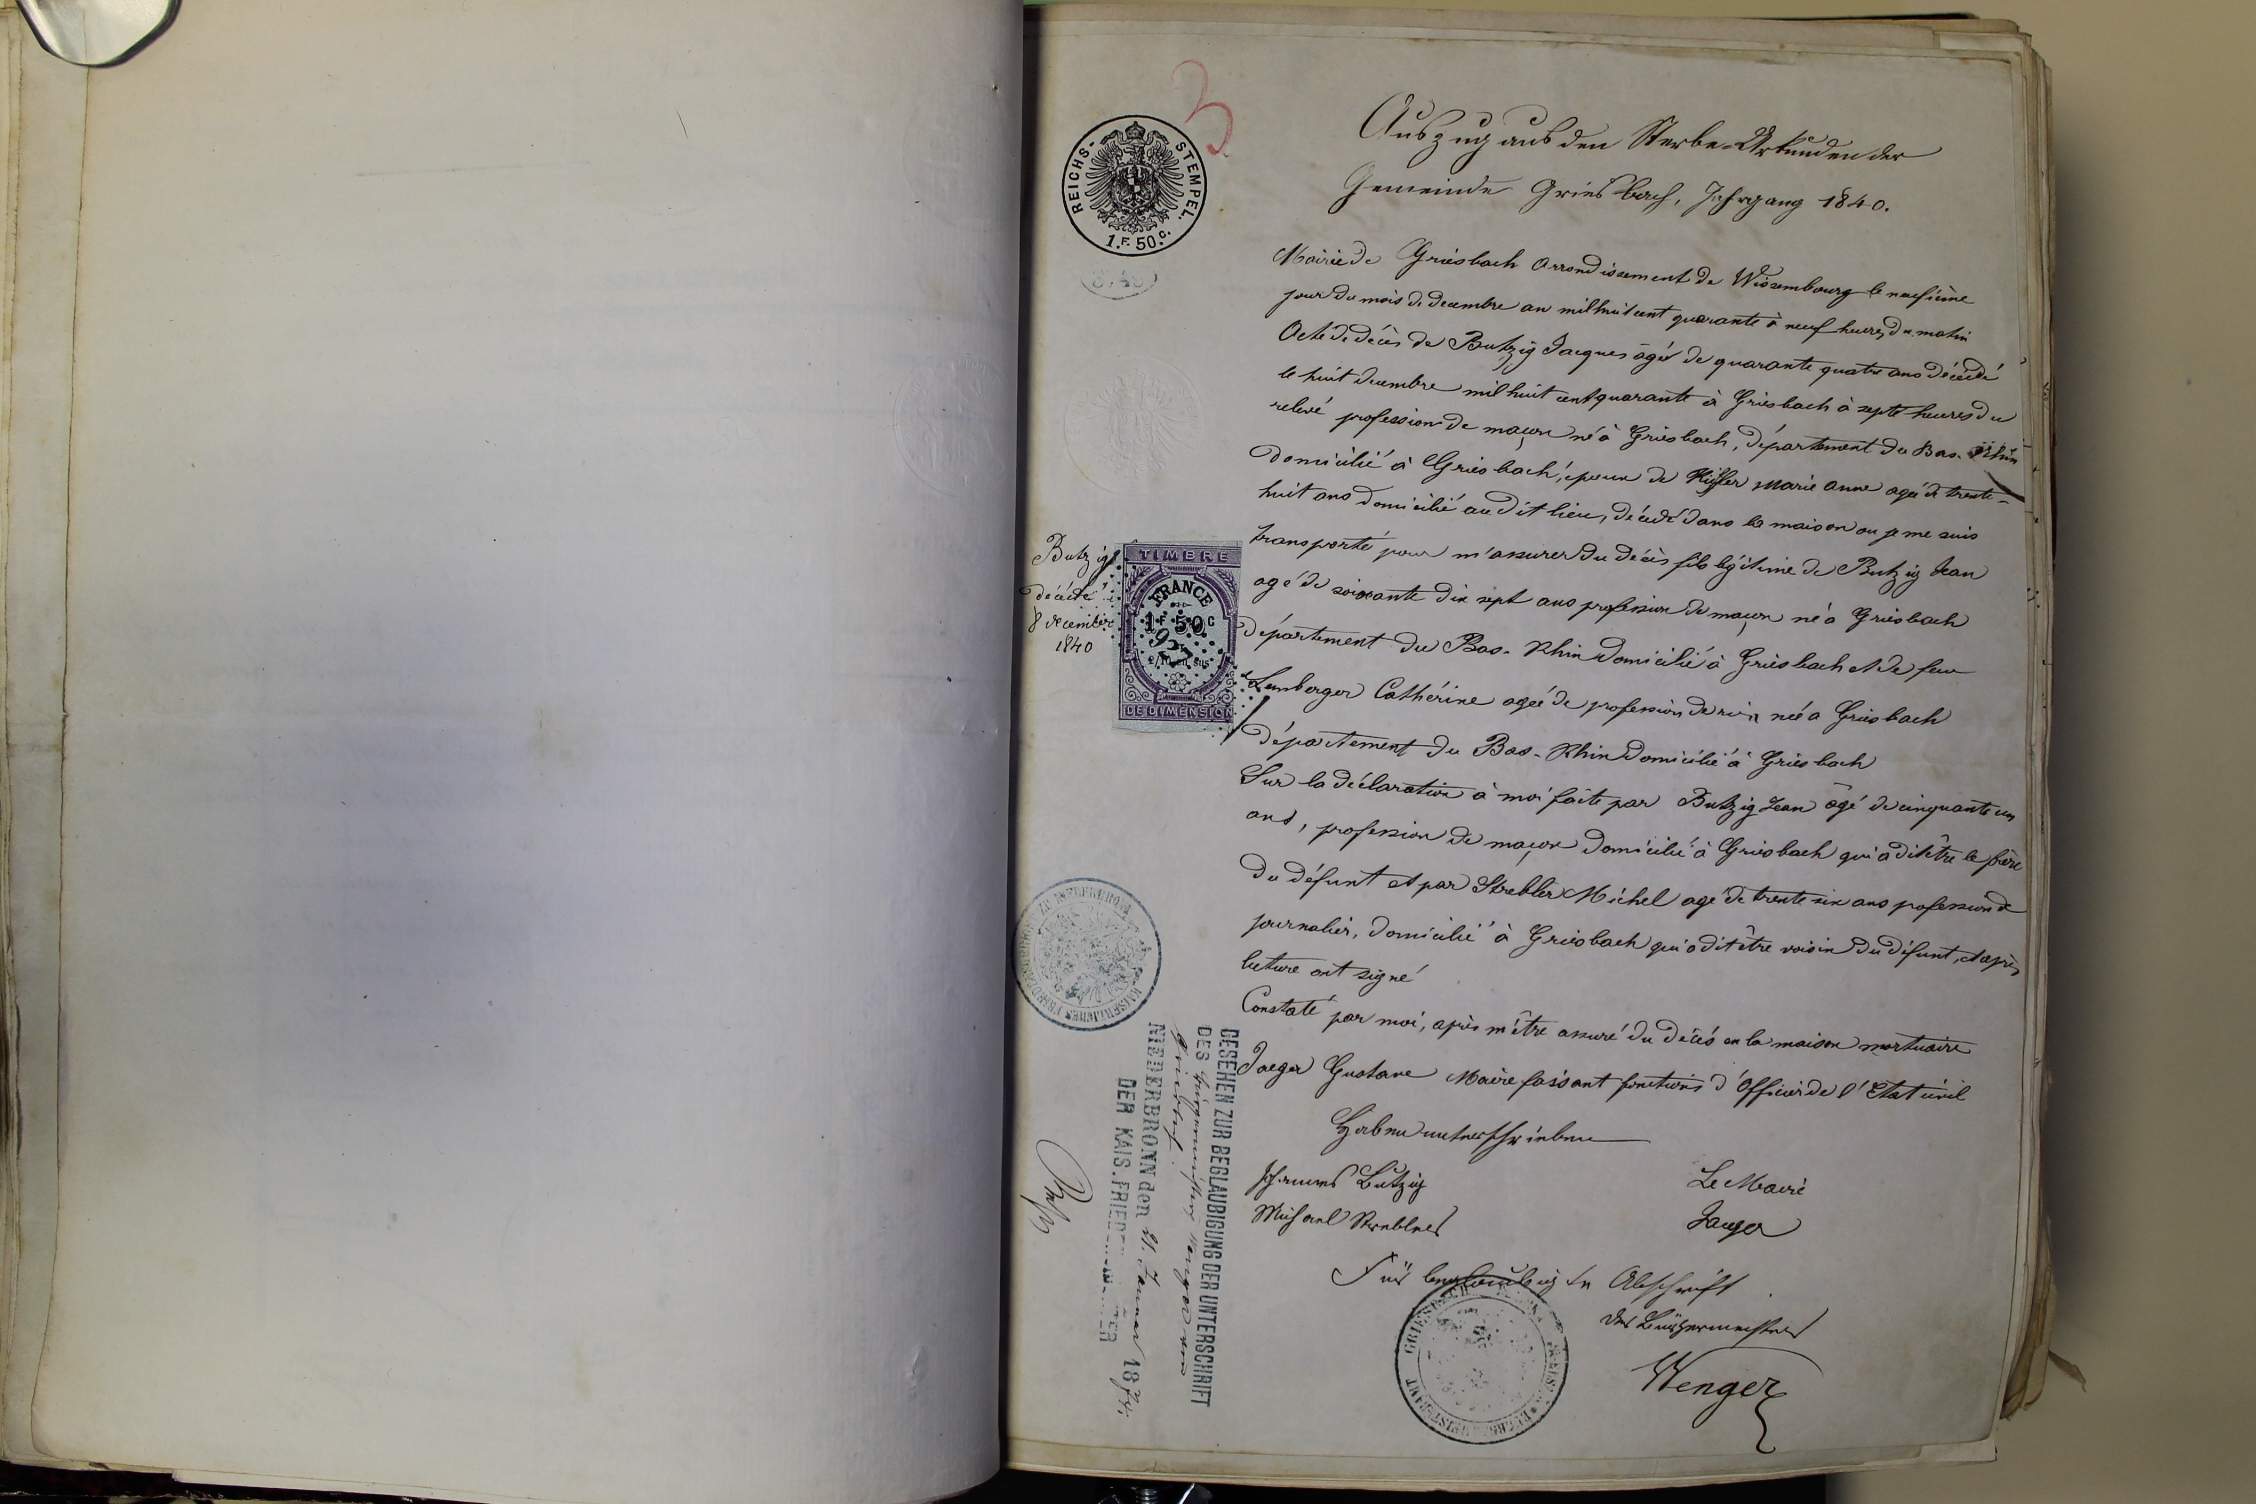 3
Auszug aus den Sterbe-Urkunden der
Gemeinde Griesbach, Jahrgang 1840.
REICHS-STEMPEL.
1.F. 50.C.
Mairie de Griesbach arrondissement de Wissembourg le neufième
jour du mois de decembre an mil huit cent quarante à neuf heures du matin
Acte de décès de Butzig Jacques âgé de quarante quatre ans décédé
le huit decembre mil huit cent quarante à Griesbach à septe heures du
relevé profession de maçon né à Griesbach, département du Bas-Rhin
domicilié à Griesbach, époux de Marie Anne agée de trente-
huit ans domicilié au dit lieu, décédé dans la maison ou je me suis
transporté pour m'assurer du décès fils légitime de Butzig Jean
agé de soixante dix sept ans profession de maçon né à Griesbach
département du Bas-Rhin domicilié à Griesbach et de feu
Lemberger Cathérine agée de profession de rien née a Griesbach
département du Bas-Rhin domicilié à Griesbach
Sur la déclaration à moi faite par Butzig Jean âgé de cinquante un
ans, profession de maçon domicilié à Griesbach qui a dit être le frère
du défunt et par Strebler Michel agé de trente six ans profession de
journalier, domicilié à Griesbach qui a dit être voisin du défunt, et après
lecture ont signé
Constaté par moi, après m'être assuré du décés en la maison mortuaire
Jaeger Gustave Maire faisant fonctions d'Officier de l'Etat civil
Haben unterschrieben
Johannes Butzig
Le Maire
Michael Strebler
Jaeger
Für beglaubigte Abschrift
der Bürgermeister
Wenger
Butzig
décédé
8 decembre
1840
TIMBRE
FRANCE
1F 50C
927
2/10 en sus
DE DIMENSION
GESEHEN ZUR BEGLAUBIGUNG DER UNTERSCHRIFT
DES Bürgermeisters Wenger von
Griesbach.
NIEDERBRONN den 21. Januar 1874.
DER KAIS. FRIEDENSRICHTER